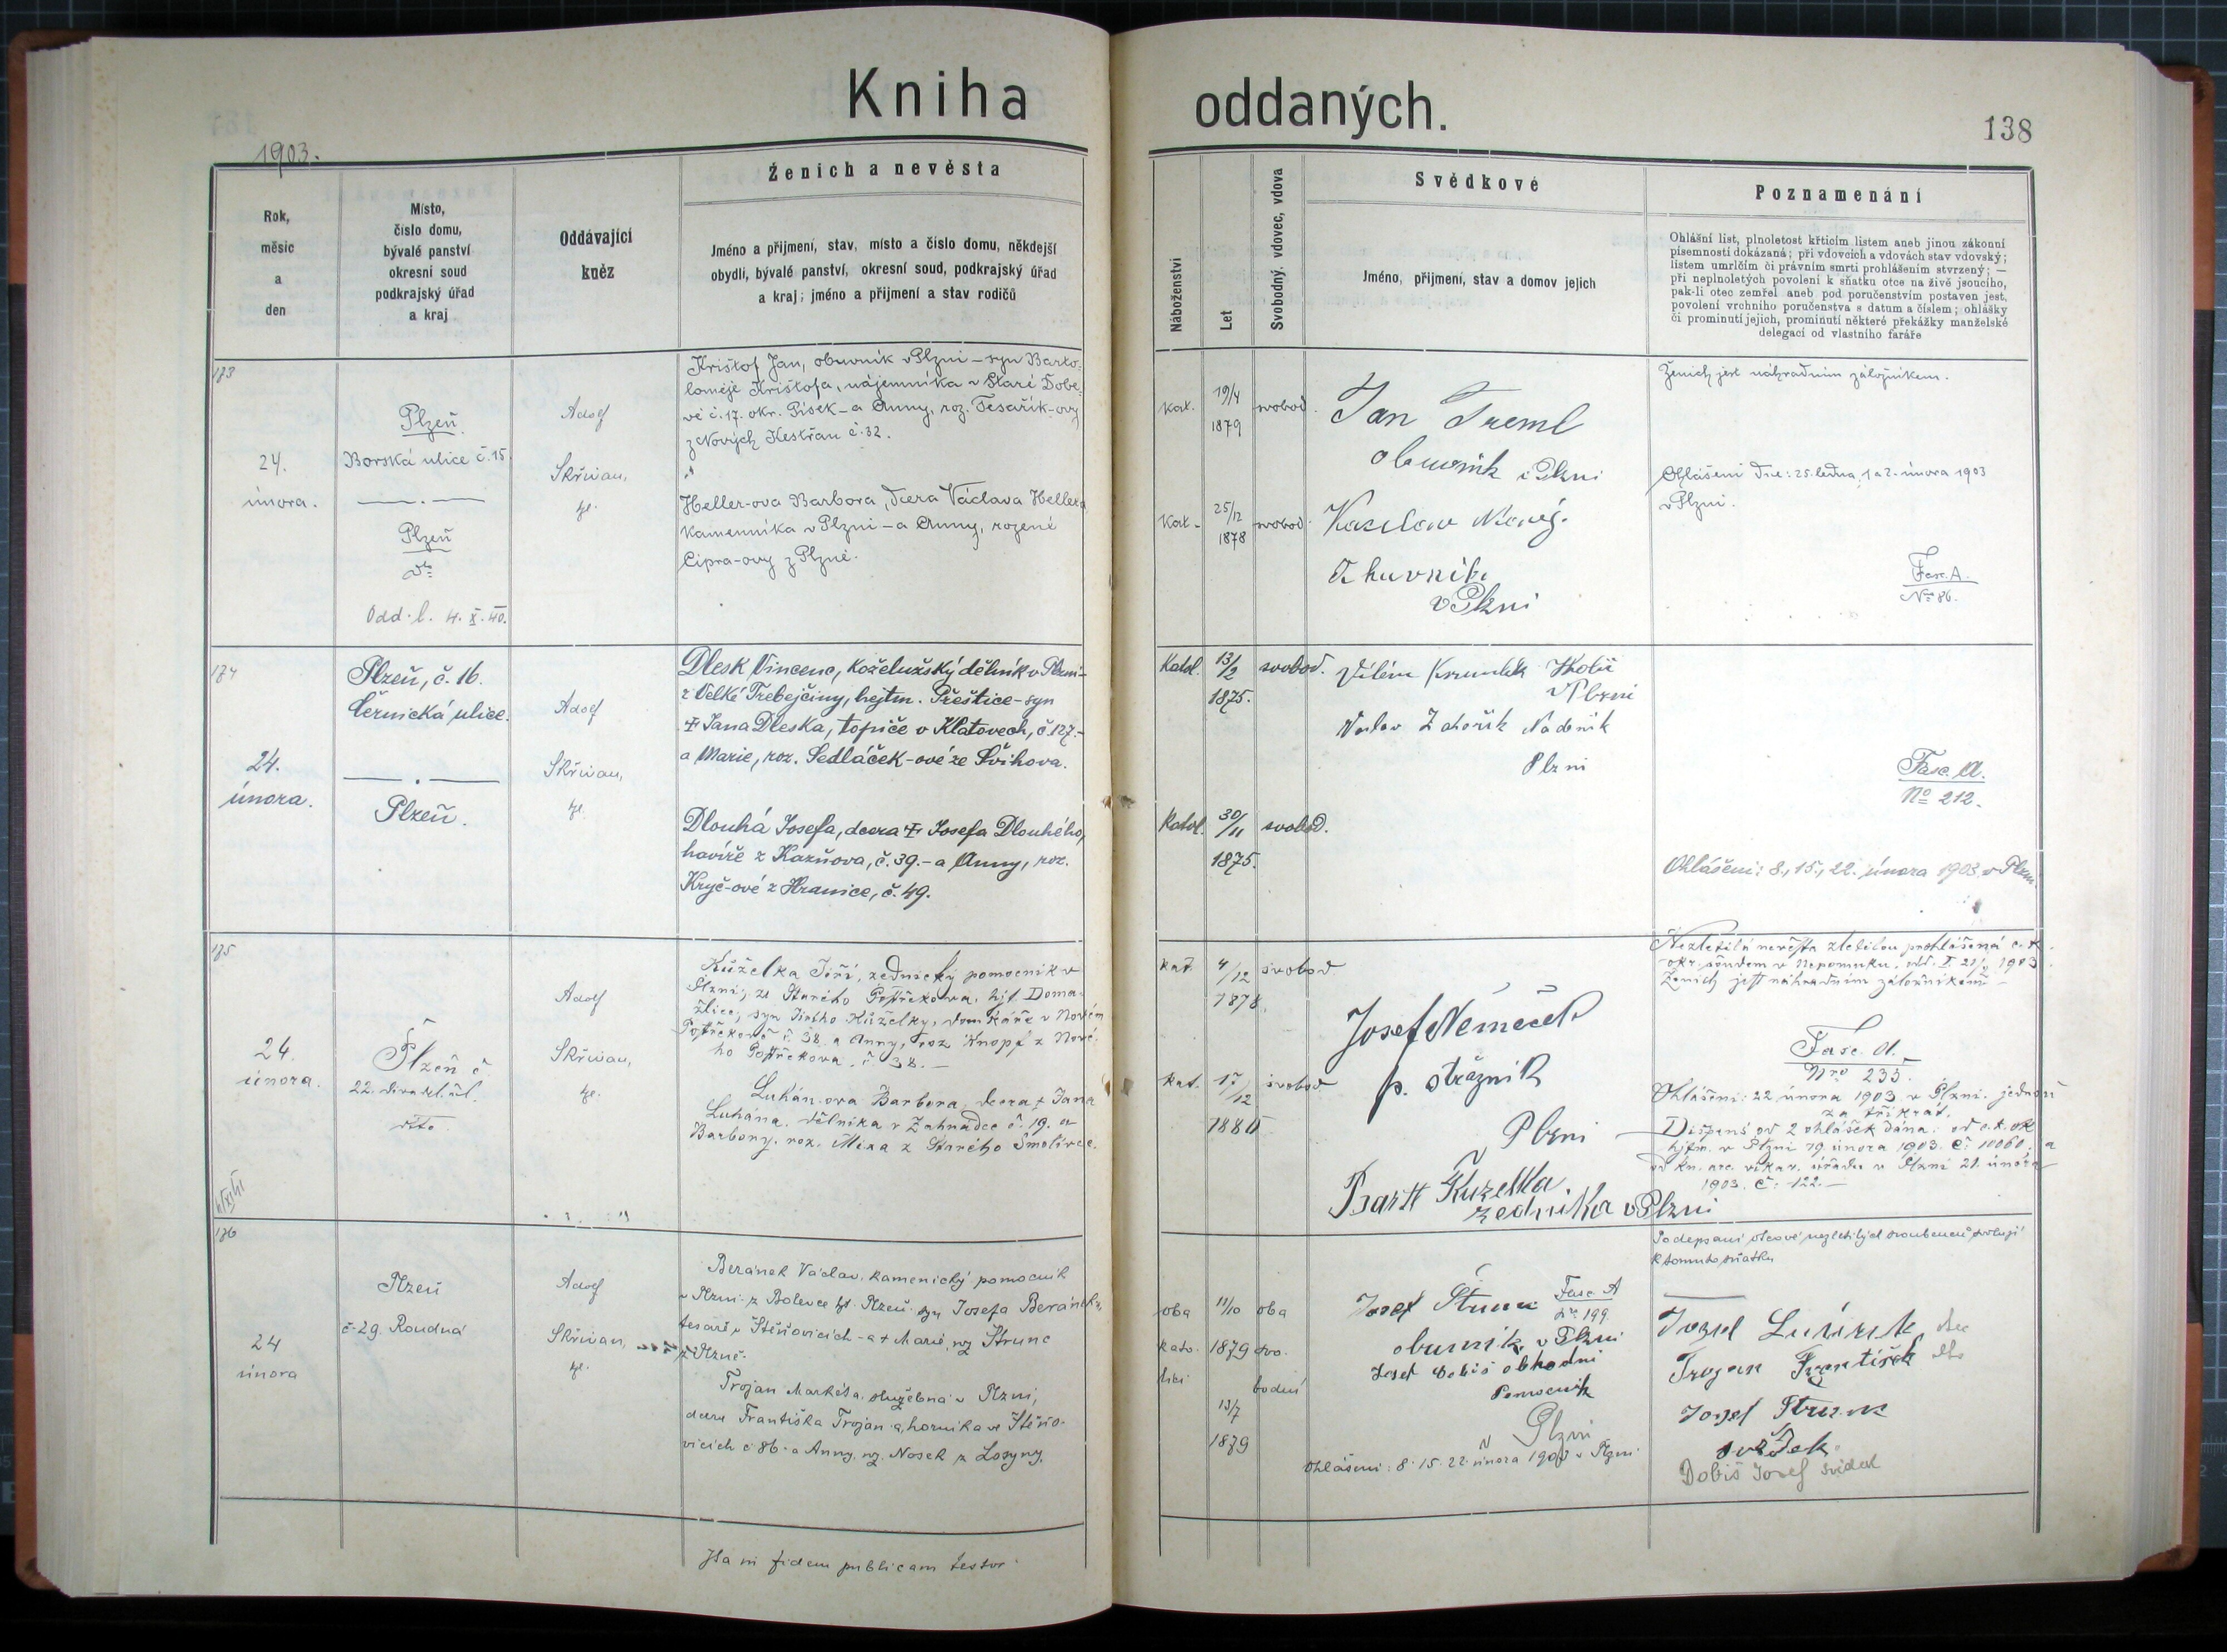 Kniha
oddaných.
138
1903.
Rok,
měsíc
a
den
Místo,
číslo domu,
bývalé panství
okresní soud
podkrajský úřad
a kraj
Oddávající
kněz
Ženich a nevěsta
Jméno a přijmení, stav, místo a číslo domu, někdejší
obydlí, bývalé panství, okresní soud, podkrajský úřad
a kraj; jméno a přijmení a stav rodičů
Náboženství
Let
Svobodný, vdovec, vdova
Svědkové
Jméno, přijmení, stav a domov jejich
Poznamenání
Ohlášní list, plnoletost křticím listem aneb jinou zákonní
písemností dokázaná; při vdovcích a vdovách stav vdovský;
listem umrlčím či právním smrti prohlášením stvrzený; —
při neplnoletých povolení k sňatku otce na živě jsoucího,
pak-li otec zemřel aneb pod poručenstvím postaven jest,
povolení vrchního poručenstva s datum a číslem; ohlášky
či prominutí jejich, prominutí některé překážky manželské
delegací od vlastního faráře
183
24.
února.
Plzeň
Borská ulice č. 15.
Plzeň
Odd. l. 4. X. 40.
Adolf
Skřivan,
Krištof Jan, obuvník v Plzni - syn Barto-
loměje Krištofa, nájemníka v Staré Dobe-
vé č. 17. okr. Písek - a Anny, roz. Tesařík-ovy
z Nových Kestřan č. 32.
Heller-ova Barbora, dcera Václava Hellera
kamenníka v Plzni - a Anny, rozené
Cipra-ovy z Plzně.
Kat.
19/4
1879
svobod.
Kat.
25/12
1878
svobod.
Jan Treml
obuvník v Plzni
v Plzni
Ženich jest náhradním záložníkem.
Ohlášení dne: 25. ledna, 1 a 2. února 1903
v Plzni.
Fasc. A.
No 86.
184
24.
února.
Plzeň, č. 16.
Černická ulice.
Plzeň.
Adolf
Skřivan,
Dlesk Vincenc, koželužský dělník v Plzni -
z Velké Třebejčiny, hejtm. Přeštice - syn
† Jana Dleska, topiče v Klatovech, č. 127. -
a Marie, roz. Sedláček-ové ze Švihova.
Dlouhá Josefa, dcera † Josefa Dlouhého,
havíře z Kazňova, č. 39. - a Anny, roz.
Kryč-ové z Hranice, č. 49.
Katol.
13/2
1875.
svobod.
Katol.
30/11
1875.
svobod.
Vilém
v Plzni
Plzni
Fasc. A.
No 212.
Ohlášení: 8., 15., 22. února 1903 v Plzni.
185
24.
února.
Plzeň č.
22. Divadel. ul.
dtto.
Adolf
Skřivan,
Kůželka Jiří, zednický pomocník v
Plzni, ze Starého Postřekova, hjt. Doma-
žlice, syn Jiřího Kůželky, domkáře v Novém
Postřekově č. 38. a Anny, roz. Knopf z Nové-
ho Postřekova č. 38. —
Lukán-ova Barbora, dcera † Jana
Lukána, dělníka v Zahrádce č. 19. a
Barbory, roz. Mixa z Starého Smolivce.
kat.
4/12
1878.
svobod
kat.
17/12
1880
svobod
Josef Němeček
p. strážník
Plzni
Bartl Kuželka
zedníka v Plzni
Nezletilá nevěsta zletilou prohlášená c. k.
okr. soudem v Nepomuku
Ženich jest náhradním záložníkem —
Fasc. A.
Nro 235.
Ohlášení: 22 února 1903 v Plzni. jednou
za třikrát.
Dispens od 2 ohlášek dána: od c. k. ok.
hjtm. v Plzni 19. února 1903. č. 10060. a
od kn. arc. vikar. úřadu v Plzni 21. února
1903. č. 122. —
186
24
února
Plzeň
č. 29. Roudná
Adolf
Skřivan,
Beránek Václav, kamenický pomocník
v Plzni z Bolevce hjt. Plzeň. syn Josefa Beránka,
tesaře v Štěňovicích - a † Marie, roz. Strunc
z Plzně.
Trojan Markéta, služebná v Plzni,
dcera Františka Trojan-a, horníka ve Štěňo-
vicích č. 86 - a Anny, roz. Nosek z Losyny.
oba
kato-
lici
11/10
1879
13/7
1879
oba
svo-
bodni
Josef Strunc
obuvník v Plzni
Josef Dobiš obchodní
Pomocník
Plzni
Fasc. A
No 199.
Ohlášeni: 8. 15. 22. února 1903 v Plzni.
Podepsaní otcové nezletilých snoubenců svolují
k tomuto sňatku
Trojan František otec
Josef Strunc
svědek
Dobiš Josef svědek
Ita in fidem publicam testor